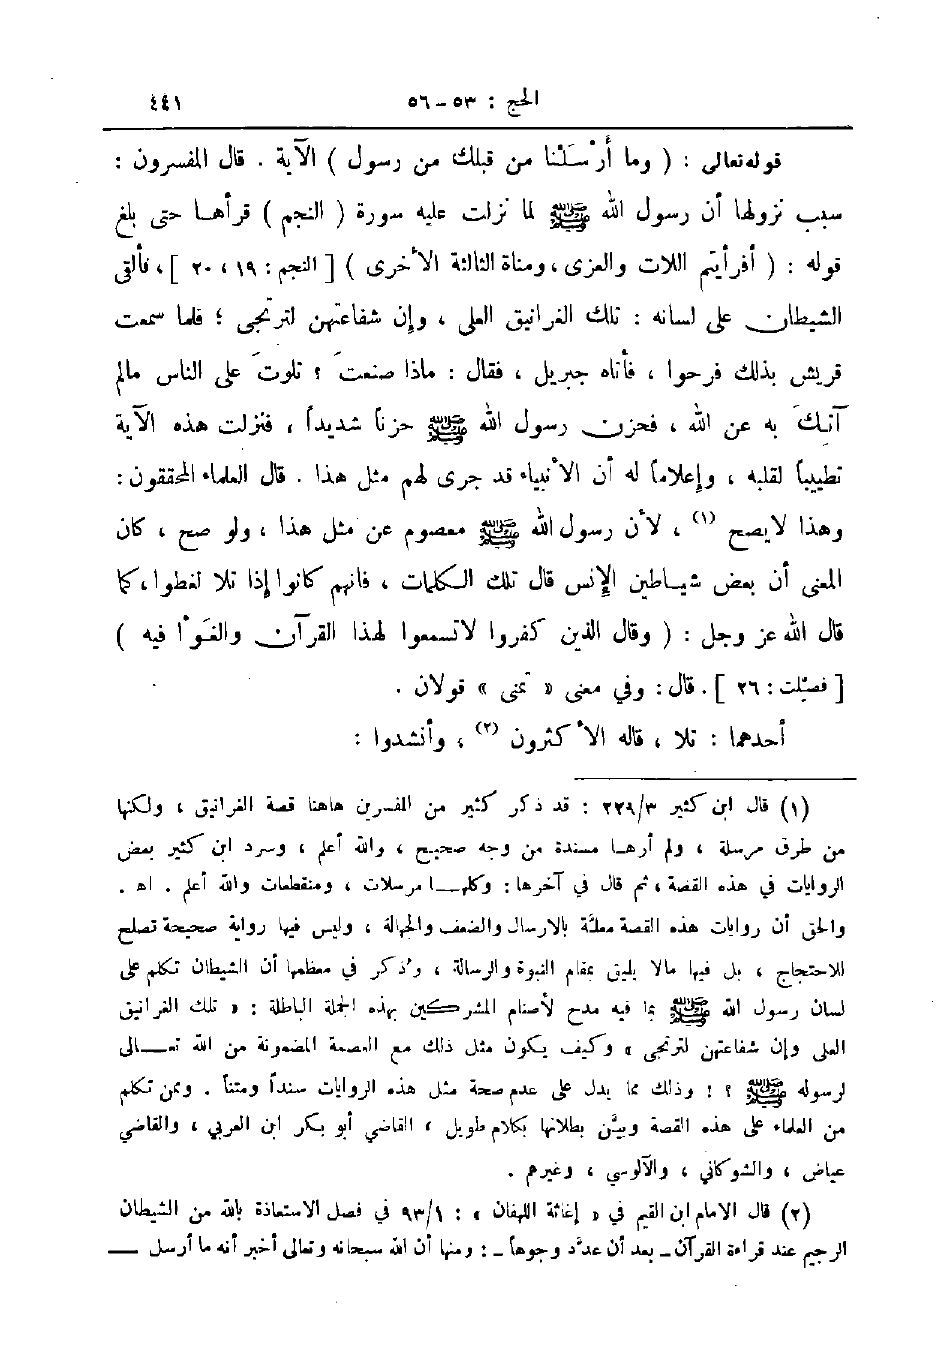 الحج : ٥٣ - ٥٦ ٤٤١
قوله تعالى : ( وما أرْسَلْنا من قبلك من رسول ) الآية . قال المفسرون :
سبب نزولها أن رسول الله ﷺ لما نزلت عليه سورة ( النجم ) قرأهـا حتى بلغ
قوله : ( أفرأيتم اللات والعزى ، ومناة الثالثة الأخرى ) [ النجم : ١٩ ، ٢٠ ] ، فألقى
الشيطان على لسانه : تلك الغرانيق العلى ، وإن شفاعتهن لترتجى ؛ فلما سمعت
قريش بذلك فرحوا ، فأتاه جبريل ، فقال : ماذا صنعتَ ؟ تلوتَ على الناس مالم
آتِكَ به عن الله ، فحزن رسول الله ﷺ حزناً شديداً ، فنزلت هذه الآية
تطييباً لقلبه ، وإعلاماً له أن الأنبياء قد جرى لهم مثل هذا . قال العلماء المحققون :
وهذا لايصح (١) ، لأن رسول الله ﷺ معصوم عن مثل هذا ، ولو صح ، كان
المعنى أن بعض شيـاطين الإنس قال تلك الكلمات ، فانهم كانوا إذا تلا لغطوا ، كما
قال الله عز وجل : ( وقال الذين كفروا لاتسمعوا لهذا القرآن والغَوْا فيه )
[ فصّلت : ٢٦ ] . قال : وفي معنى « تمنى » قولان .
أحدهما : تلا ، قاله الأكثرون (٢) ، وأنشدوا :
(١) قال ابن كثير ٢٢٩/٣ : قد ذكر كثير من المفسرين هاهنا قصة الغرانيق ، ولكنها
من طرق مرسلة ، ولم أرهـا مسندة من وجه صحيح ، والله أعلم ، وسرد ابن كثير بعض
الروايات في هذه القصة ، ثم قال في آخرها : وكلهـا مرسلات ، ومنقطعات والله أعلم . اهـ .
والحق أن روايات هذه القصة معلّة بالارسال والضعف والجهالة ، وليس فيها رواية صحيحة تصلح
للاحتجاج ، بل فيها مالا يليق بمقام النبوة والرسالة ، وذكر في معظمها أن الشيطان تكلم على
لسان رسول الله ﷺ بما فيه مدح لأصنام المشركين بهذه الجملة الباطلة : « تلك الغرانيق
العلى وإن شفاعتهن لترتجى » وكيف يكون مثل ذلك مع العصمة المضمونة من الله تعـالى
لرسوله ﷺ ؟ ! وذلك مما يدل على عدم صحة مثل هذه الروايات سنداً ومتناً . وممن تكلم
من العلماء على هذه القصة وبيّن بطلانها بكلام طويل ، القاضي أبو بكر ابن العربي ، والقاضي
عياض ، والشوكاني ، والآلوسي ، وغيرهم .
(٢) قال الامام ابن القيم في « إغاثة اللهفان » : ٩٣/١ في فصل الاستعاذة بالله من الشيطان
الرجيم عند قراءة القرآن ـ بعد أن عدّد وجوهاً ـ : ومنها أن الله سبحانه وتعالى أخبر أنه ما أرسل ـــ